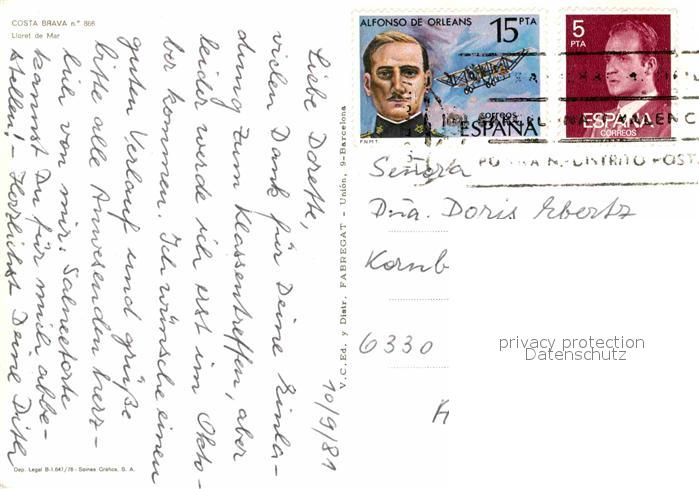 COSTA BRAVA n.° 866
Lloret de Mar
10/9/81
Liebe Dorette,
vielen Dank für Deine Einla-
dung zum Klassentreffen, aber
leider werde ich erst im Okto-
ber kommen. Ich wünsche einen
guten Verlauf und grüße
bitte alle Anwesenden herz-
lich von mir. Sahnetorte
kannst Du für mich abbe-
stellen! - Herzlichst Deine
Dep. Legal B-1.647/78 - Soines Gráfica, S. A.
V.C.Ed. y Distr. FABREGAT - Unión, 9-Barcelona
ALFONSO DE ORLEANS 15 PTA
CORREOS
ESPAÑA
F.N.M.T.
5 PTA
ESPAÑA
CORREOS
DISTRITO POST
Señora
Dña. Doris Ebertz
Kornb
6330
privacy protection
Datenschutz